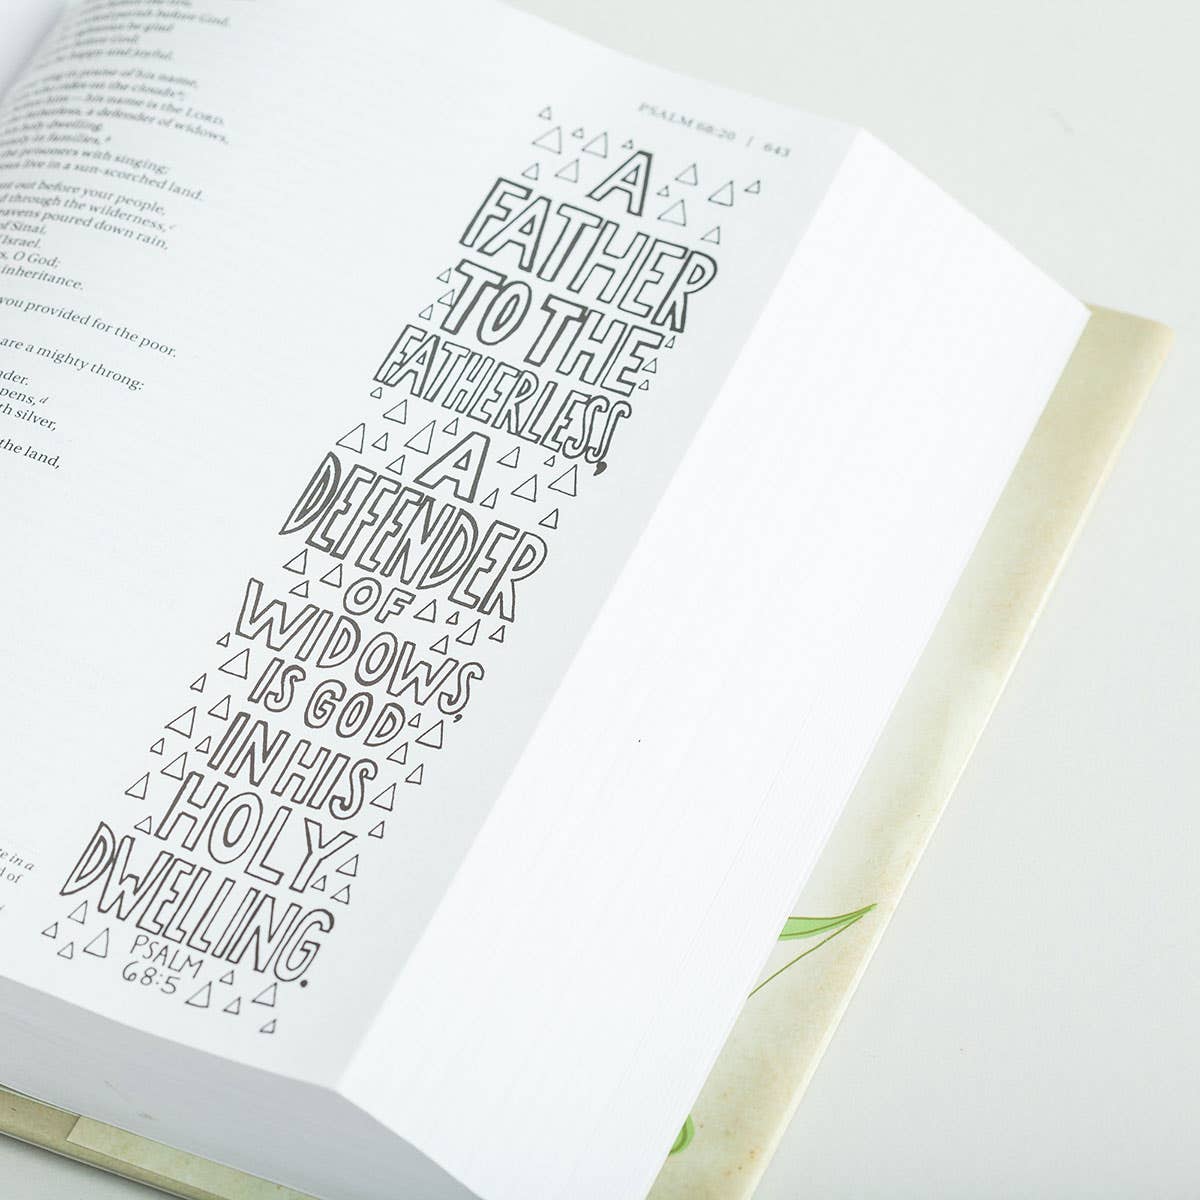 PSALM 68:20 | 643
praise of his name,
on the clouds
his name is the LORD.
a defender of widows,
holy dwelling.
in families,
prisoners with singing;
live in a sun-scorched land.
out before your people,
through the wilderness, c
poured down rain,
of Sinai,
Israel.
O God;
inheritance.
you provided for the poor.
are a mighty throng:
d
silver,
the land,
in a
of
A
FATHER
TO THE
FATHERLESS,
A
DEFENDER
OF
WIDOWS,
IS GOD
IN HIS
HOLY
DWELLING.
PSALM
68:5